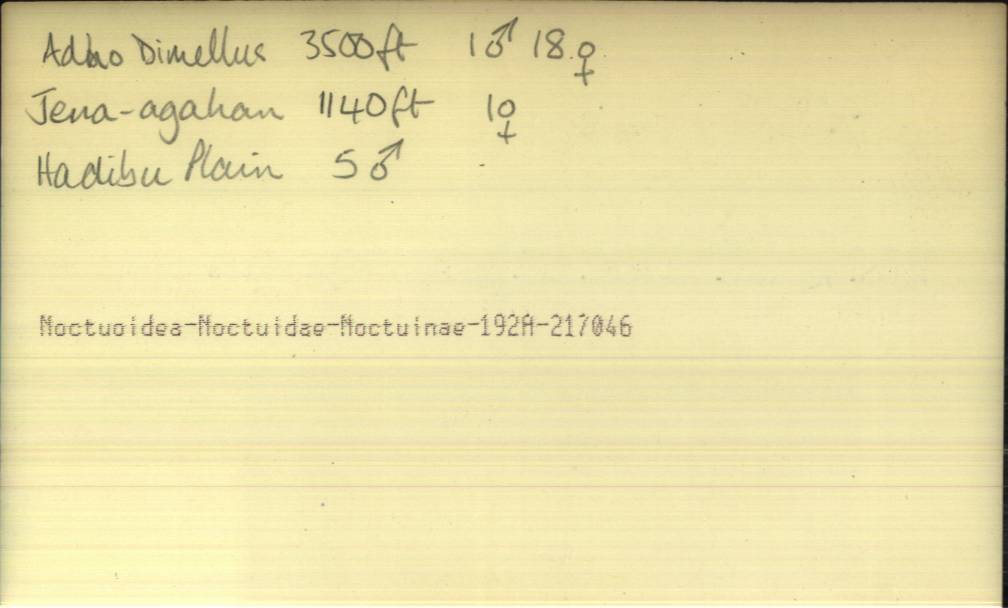 Adho Dimellus 3500ft 1♂ 18♀
Jena-agahan 1140ft 1♀
Hadibu Plain 5♂
Noctuoidea-Noctuidae-Noctuinae-192A-217046